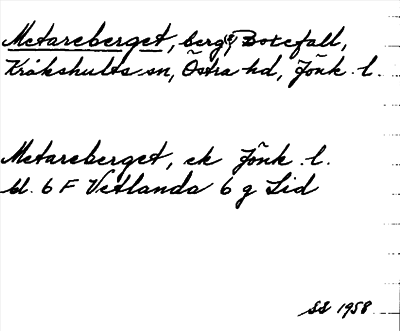 Metareberget, berg, Botefall,
Kråkshults sn, Östra hd, Jönk. l.
Metareberget, ek Jönk. l.
bl. 6 F Vetlanda 6 g Lid
SS 1958